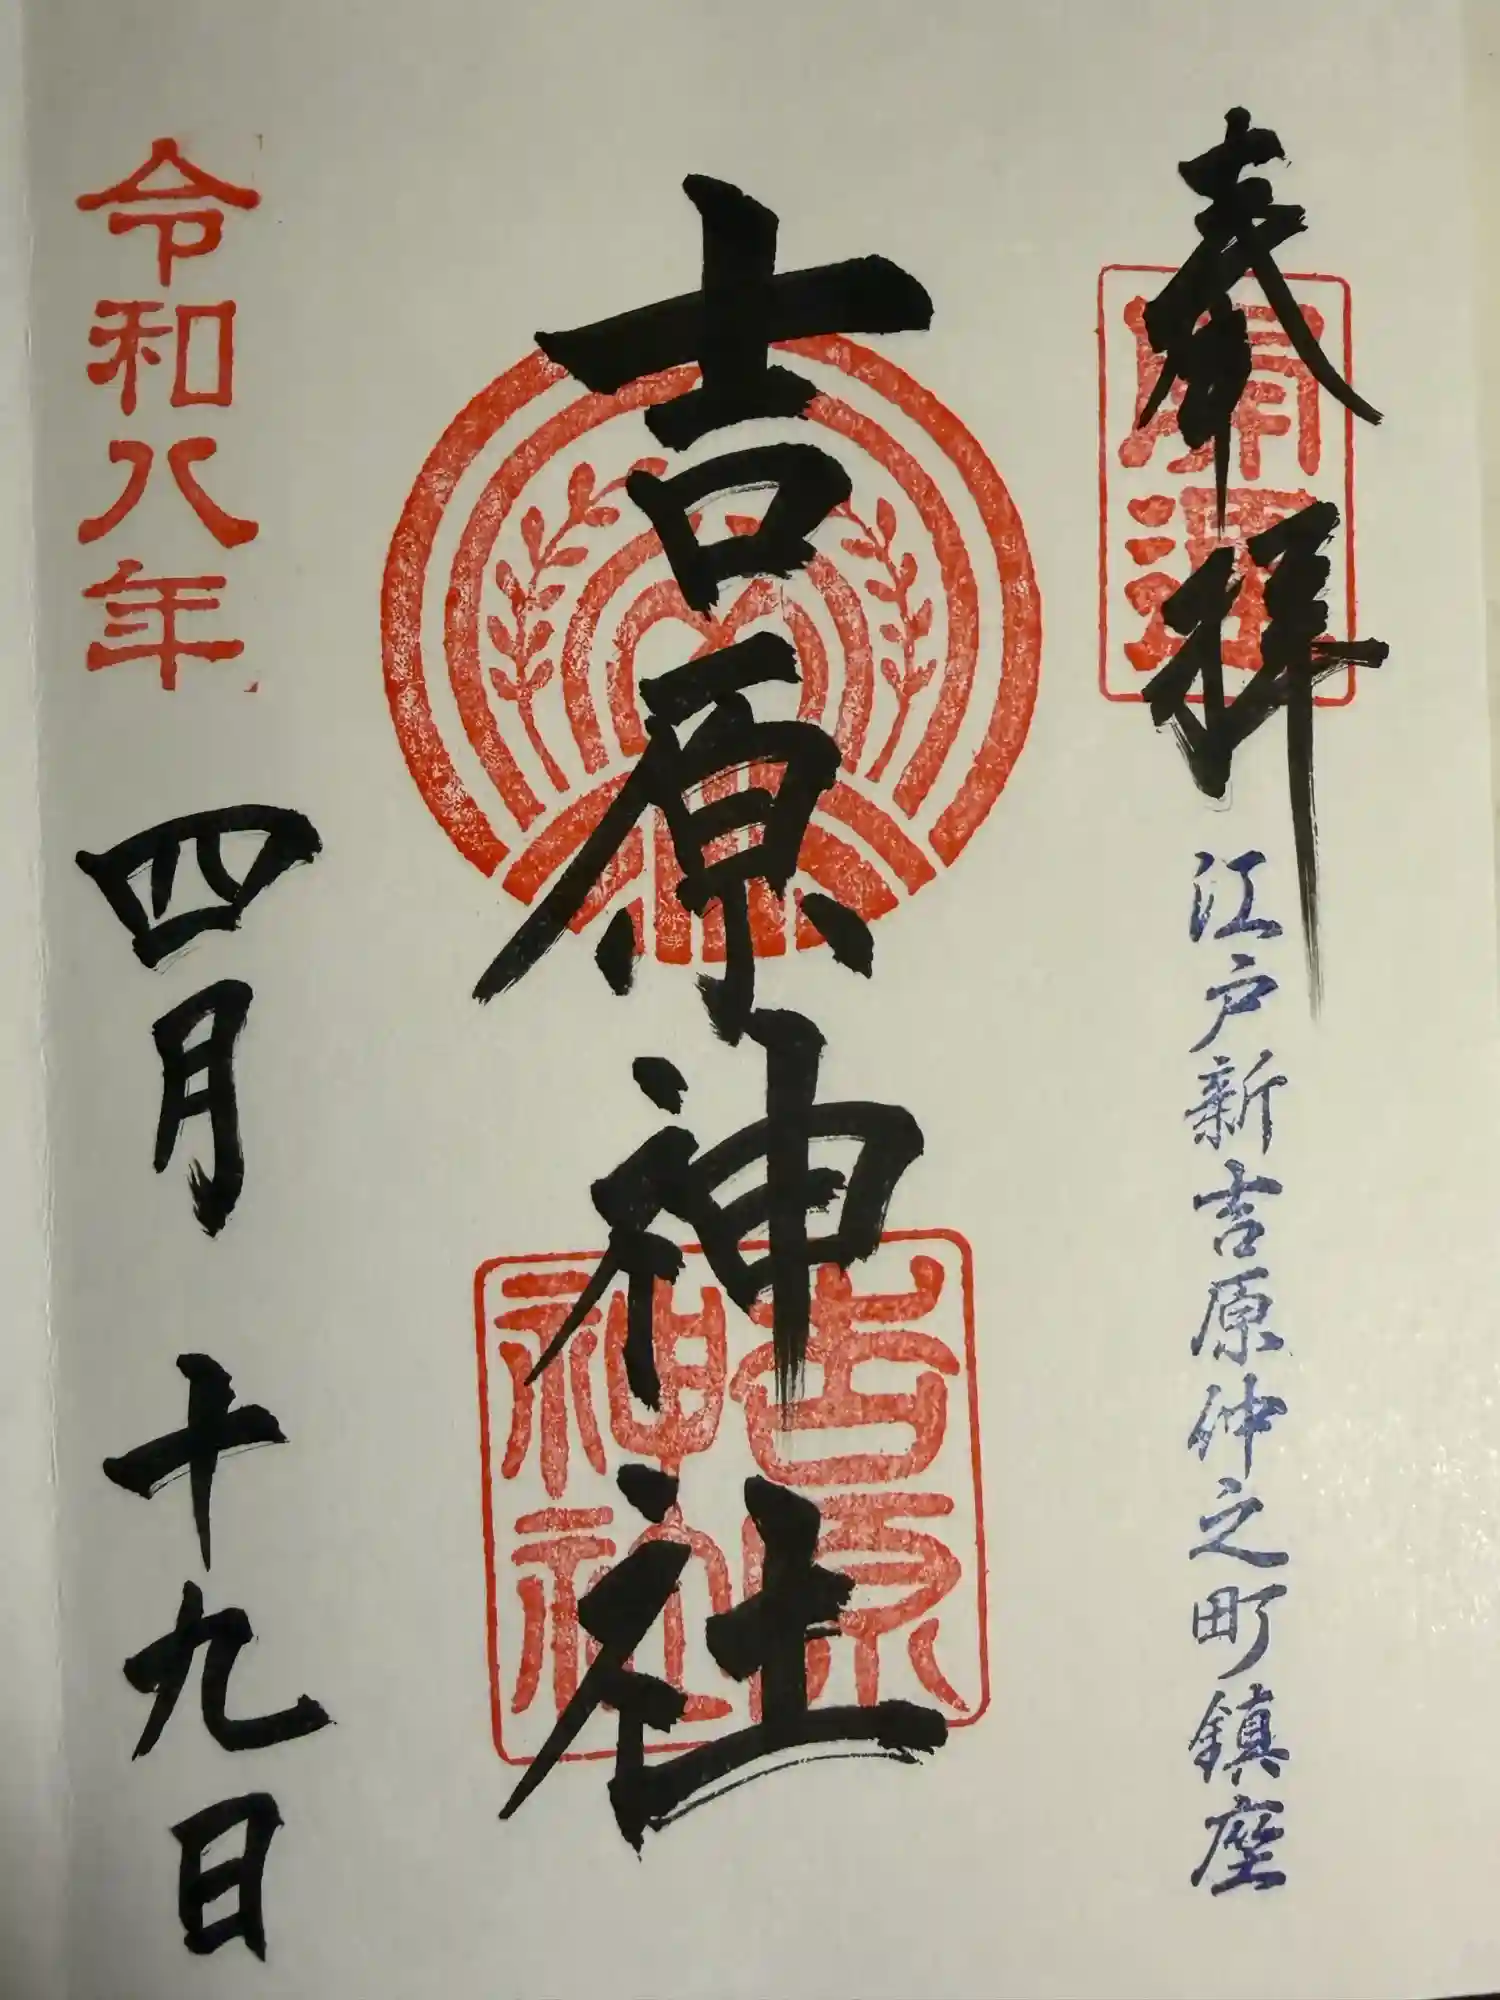 奉拝
開運
江戸新吉原仲之町鎮座
吉原神社
吉原
神社
令和八年
四月十九日